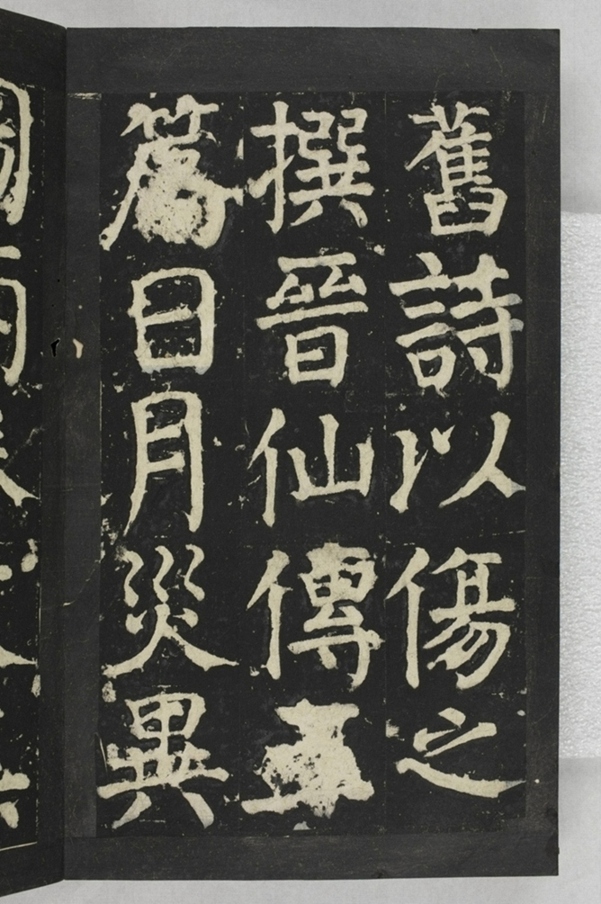 舊詩以傷之
撰晉仙傳
篇目月災異